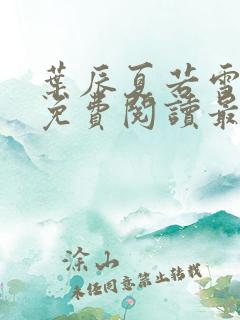 葉辰夏若雪
免費閱讀最
涂山
未经同意禁止转载